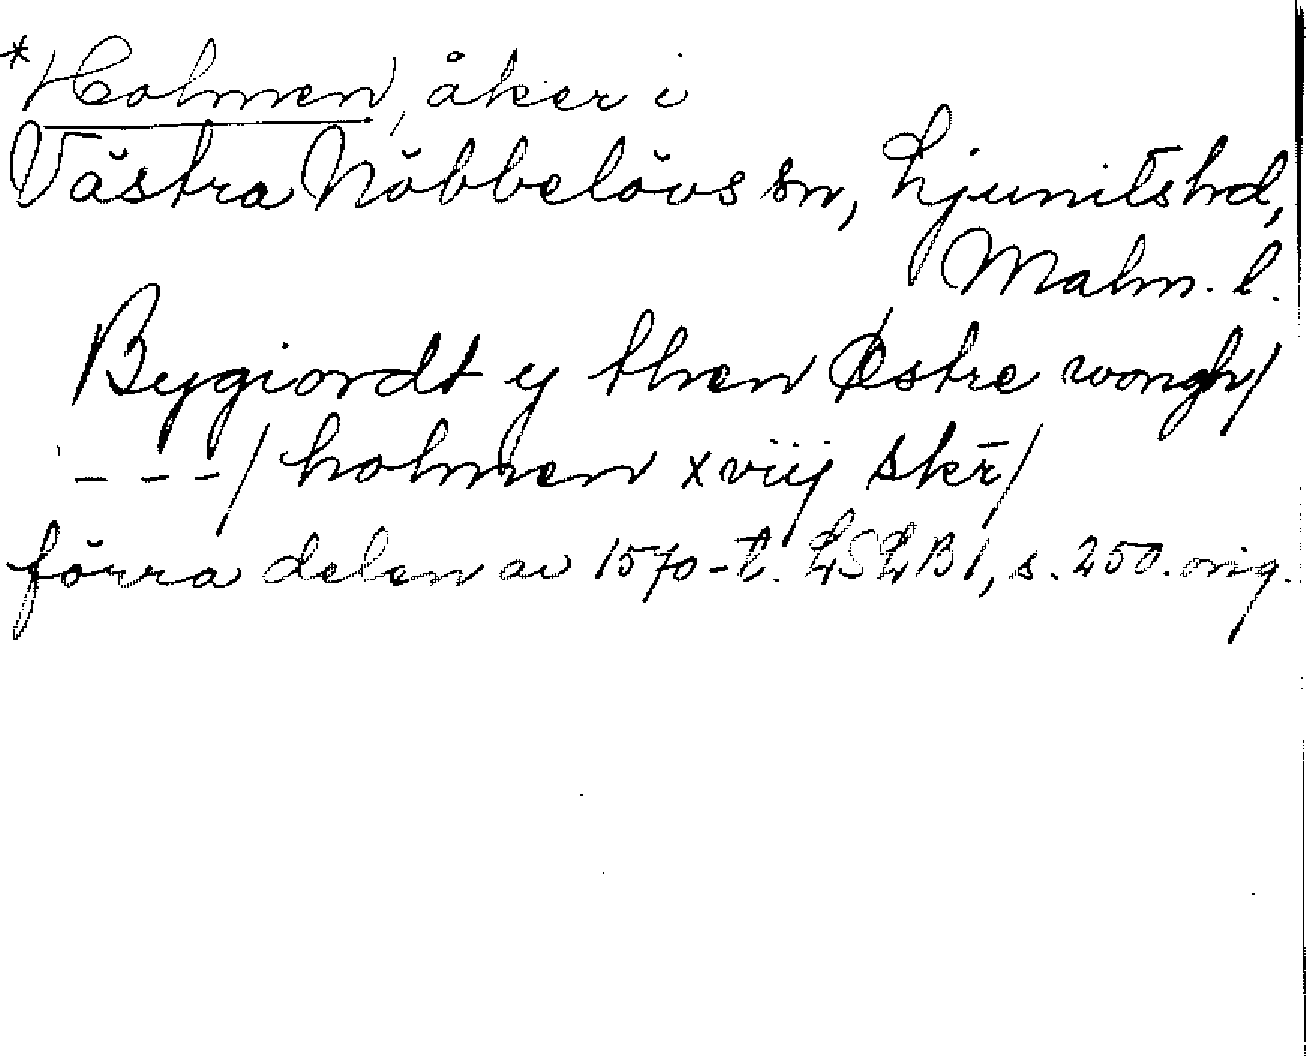 *Holmen, åker i
Västra Nöbbelövs sn, Ljunitshd,
Malm. l.
Bygiordt y then Østre wongh/
- - -/ holmen xviij skr̄/
förra delen av 1570-t. LSLB1, s. 250. orig.